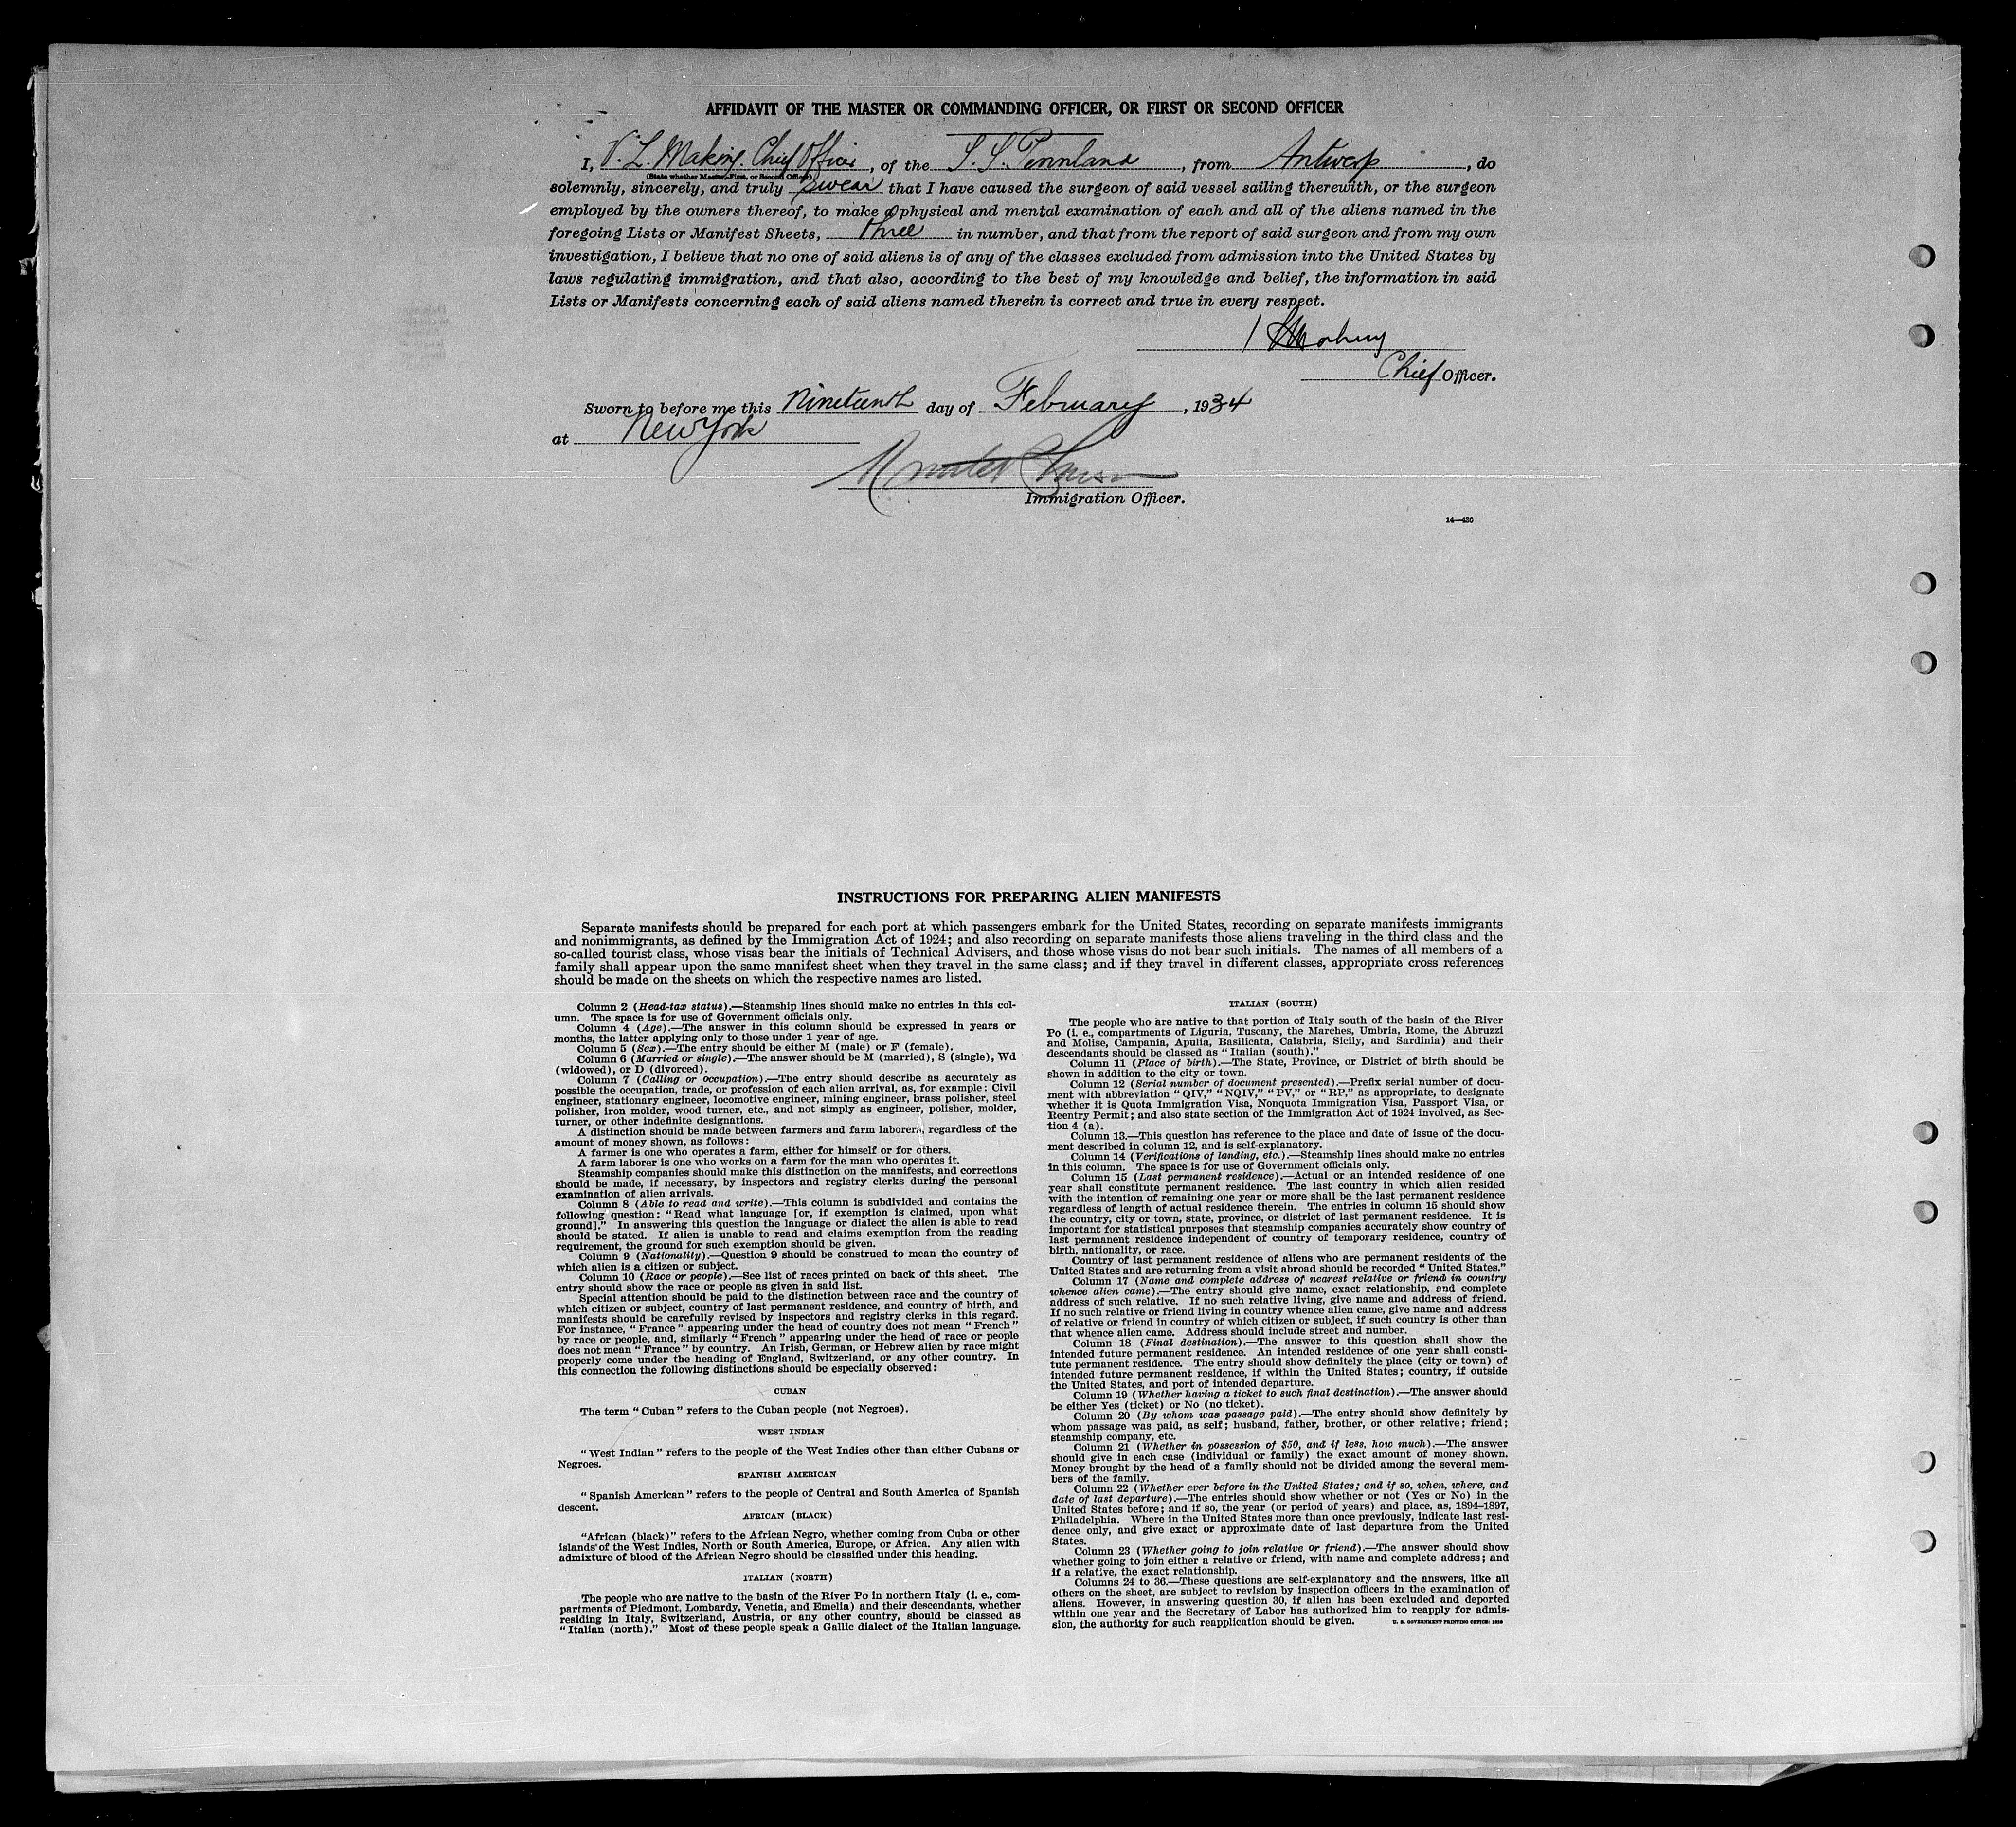 AFFIDAVIT OF THE MASTER OR COMMANDING OFFICER, OR FIRST OR SECOND OFFICER
I, V. L. Making. Chief Officer, of the S. S. Pennland, from Antwerp, do
(State whether Master, First, or Second Officer)
solemnly, sincerely, and truly swear that I have caused the surgeon of said vessel sailing therewith, or the surgeon
employed by the owners thereof, to make a physical and mental examination of each and all of the aliens named in the
foregoing Lists or Manifest Sheets, three in number, and that from the report of said surgeon and from my own
investigation, I believe that no one of said aliens is of any of the classes excluded from admission into the United States by
laws regulating immigration, and that also, according to the best of my knowledge and belief, the information in said
Lists or Manifests concerning each of said aliens named therein is correct and true in every respect.
Chief Officer.
Sworn to before me this Nineteenth day of February, 1934
at New York
Immigration Officer.
14—430
INSTRUCTIONS FOR PREPARING ALIEN MANIFESTS
Separate manifests should be prepared for each port at which passengers embark for the United States, recording on separate manifests immigrants
and nonimmigrants, as defined by the Immigration Act of 1924; and also recording on separate manifests those aliens traveling in the third class and the
so-called tourist class, whose visas bear the initials of Technical Advisers, and those whose visas do not bear such initials. The names of all members of a
family shall appear upon the same manifest sheet when they travel in the same class; and if they travel in different classes, appropriate cross references
should be made on the sheets on which the respective names are listed.
Column 2 (Head-tax status).—Steamship lines should make no entries in this col-
umn. The space is for use of Government officials only.
Column 4 (Age).—The answer in this column should be expressed in years or
months, the latter applying only to those under 1 year of age.
Column 5 (Sex).—The entry should be either M (male) or F (female).
Column 6 (Married or single).—The answer should be M (married), S (single), Wd
(widowed), or D (divorced).
Column 7 (Calling or occupation).—The entry should describe as accurately as
possible the occupation, trade, or profession of each alien arrival, as, for example: Civil
engineer, stationary engineer, locomotive engineer, mining engineer, brass polisher, steel
polisher, iron molder, wood turner, etc., and not simply as engineer, polisher, molder,
turner, or other indefinite designations.
A distinction should be made between farmers and farm laborers, regardless of the
amount of money shown, as follows:
A farmer is one who operates a farm, either for himself or for others.
A farm laborer is one who works on a farm for the man who operates it.
Steamship companies should make this distinction on the manifests, and corrections
should be made, if necessary, by inspectors and registry clerks during the personal
examination of alien arrivals.
Column 8 (Able to read and write).—This column is subdivided and contains the
following question: “Read what language [or, if exemption is claimed, upon what
ground].” In answering this question the language or dialect the alien is able to read
should be stated. If alien is unable to read and claims exemption from the reading
requirement, the ground for such exemption should be given.
Column 9 (Nationality).—Question 9 should be construed to mean the country of
which alien is a citizen or subject.
Column 10 (Race or people).—See list of races printed on back of this sheet. The
entry should show the race or people as given in said list.
Special attention should be paid to the distinction between race and the country of
which citizen or subject, country of last permanent residence, and country of birth, and
manifests should be carefully revised by inspectors and registry clerks in this regard.
For instance, “France” appearing under the head of country does not mean “French”
by race or people, and, similarly “French” appearing under the head of race or people
does not mean “France” by country. An Irish, German, or Hebrew alien by race might
properly come under the heading of England, Switzerland, or any other country. In
this connection the following distinctions should be especially observed:
CUBAN
The term “Cuban” refers to the Cuban people (not Negroes).
WEST INDIAN
“West Indian” refers to the people of the West Indies other than either Cubans or
Negroes.
SPANISH AMERICAN
“Spanish American” refers to the people of Central and South America of Spanish
descent.
AFRICAN (BLACK)
“African (black)” refers to the African Negro, whether coming from Cuba or other
islands of the West Indies, North or South America, Europe, or Africa. Any alien with
admixture of blood of the African Negro should be classified under this heading.
ITALIAN (NORTH)
The people who are native to the basin of the River Po in northern Italy (i. e., com-
partments of Piedmont, Lombardy, Venetia, and Emelia) and their descendants, whether
residing in Italy, Switzerland, Austria, or any other country, should be classed as
“Italian (north).” Most of these people speak a Gallic dialect of the Italian language.
ITALIAN (SOUTH)
The people who are native to that portion of Italy south of the basin of the River
Po (i. e., compartments of Liguria, Tuscany, the Marches, Umbria, Rome, the Abruzzi
and Molise, Campania, Apulia, Basilicata, Calabria, Sicily, and Sardinia) and their
descendants should be classed as “Italian (south).”
Column 11 (Place of birth).—The State, Province, or District of birth should be
shown in addition to the city or town.
Column 12 (Serial number of document presented).—Prefix serial number of docu-
ment with abbreviation “QIV,” “NQIV,” “PV,” or “RP,” as appropriate, to designate
whether it is Quota Immigration Visa, Nonquota Immigration Visa, Passport Visa, or
Reentry Permit; and also state section of the Immigration Act of 1924 involved, as Sec-
tion 4 (a).
Column 13.—This question has reference to the place and date of issue of the docu-
ment described in column 12, and is self-explanatory.
Column 14 (Verifications of landing, etc.).—Steamship lines should make no entries
in this column. The space is for use of Government officials only.
Column 15 (Last permanent residence).—Actual or an intended residence of one
year shall constitute permanent residence. The last country in which alien resided
with the intention of remaining one year or more shall be the last permanent residence
regardless of length of actual residence therein. The entries in column 15 should show
the country, city or town, state, province, or district of last permanent residence. It is
important for statistical purposes that steamship companies accurately show country of
last permanent residence independent of country of temporary residence, country of
birth, nationality, or race.
Country of last permanent residence of aliens who are permanent residents of the
United States and are returning from a visit abroad should be recorded “United States.”
Column 17 (Name and complete address of nearest relative or friend in country
whence alien came).—The entry should give name, exact relationship, and complete
address of such relative. If no such relative living, give name and address of friend.
If no such relative or friend living in country whence alien came, give name and address
of relative or friend in country of which citizen or subject, if such country is other than
that whence alien came. Address should include street and number.
Column 18 (Final destination).—The answer to this question shall show the
intended future permanent residence. An intended residence of one year shall consti-
tute permanent residence. The entry should show definitely the place (city or town) of
intended future permanent residence, if within the United States; country, if outside
the United States, and port of intended departure.
Column 19 (Whether having a ticket to such final destination).—The answer should
be either Yes (ticket) or No (no ticket).
Column 20 (By whom was passage paid).—The entry should show definitely by
whom passage was paid, as self; husband, father, brother, or other relative; friend;
steamship company, etc.
Column 21 (Whether in possession of $50, and if less, how much).—The answer
should give in each case (individual or family) the exact amount of money shown.
Money brought by the head of a family should not be divided among the several mem-
bers of the family.
Column 22 (Whether ever before in the United States; and if so, when, where, and
date of last departure).—The entries should show whether or not (Yes or No) in the
United States before; and if so, the year (or period of years) and place, as, 1894–1897,
Philadelphia. Where in the United States more than once previously, indicate last resi-
dence only, and give exact or approximate date of last departure from the United
States.
Column 23 (Whether going to join relative or friend).—The answer should show
whether going to join either a relative or friend, with name and complete address; and
if a relative, the exact relationship.
Columns 24 to 36.—These questions are self-explanatory and the answers, like all
others on the sheet, are subject to revision by inspection officers in the examination of
aliens. However, in answering question 30, if alien has been excluded and deported
within one year and the Secretary of Labor has authorized him to reapply for admis-
sion, the authority for such reapplication should be given. U. S. GOVERNMENT PRINTING OFFICE: